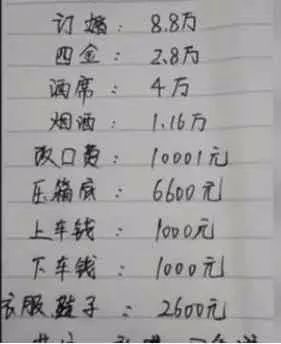 订婚: 8.8万
四金: 2.8万
酒席: 4万
烟酒: 1.16万
改口费: 10001元
压箱底: 6600元
上车钱: 1000元
下车钱: 1000元
衣服鞋子: 2600元